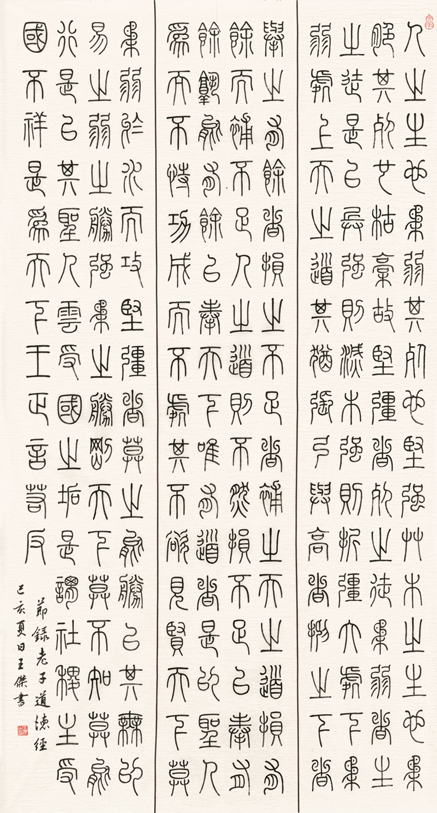 人之生也柔弱其死也堅強艸木之生也柔
脆其死也枯槁故堅彊者死之徒柔弱者生
之徒是以兵強則滅木強則折彊大處下柔
弱處上天之道其猶張弓與高者抑之下者
舉之有餘者損之不足者補之天之道損有
餘而補不足人之道則不然損不足以奉有
餘孰能有餘以奉天下唯有道者是以聖人
為而不恃功成而不處其不欲見賢天下莫
柔弱於水而攻堅彊者莫之能勝以其無以
易之弱之勝強柔之勝剛天下莫不知莫能
行是以其聖人雲受國之垢是謂社稷主受
國不祥是為天下王正言若反
節錄老子道德經
己亥夏日王傑書